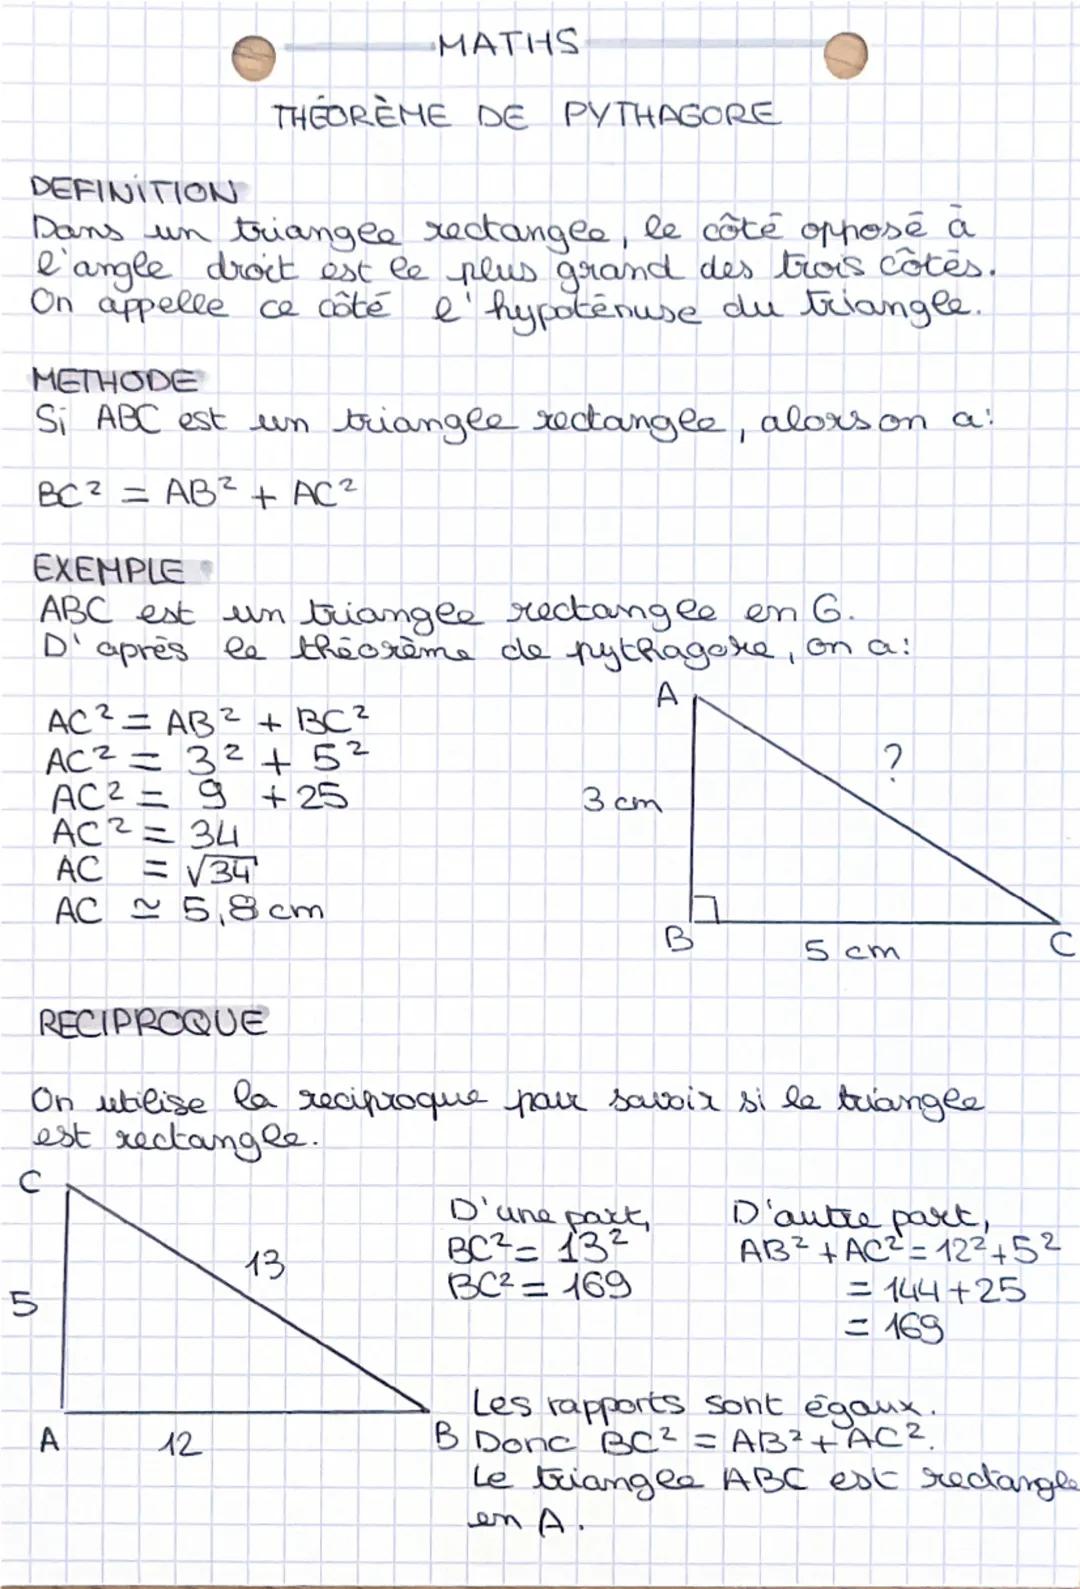 MATHS
THÉORÈME DE PYTHAGORE
DEFINITION
Dans un triangle rectangle, le côté opposé à
l'angle droit est le plus grand des trois côtés.
On appelle ce côté l'hypoténuse du triangle.
METHODE
Si ABC est un triangle rectangle, alors on a:
BC² = AB² + AC²
EXEMPLE
ABC est un triangle rectangle en G.
D'après le théorème de pythagore, on a:
AC² = AB² + BC²
AC² = 3² + 5²
AC² = 9 + 25
AC² = 34
AC = √34
AC ≃ 5,8 cm
A
?
3 cm
B
5 cm
C
RECIPROQUE
On utilise la reciproque pour savoir si le triangle
est rectangle.
C
13
5
A
12
B
D'une part,
BC² = 13²
BC² = 169
D'autre part,
AB² + AC² = 12² + 5²
= 144 + 25
= 169
Les rapports sont égaux.
Donc BC² = AB² + AC².
Le triangle ABC est rectangle
en A.